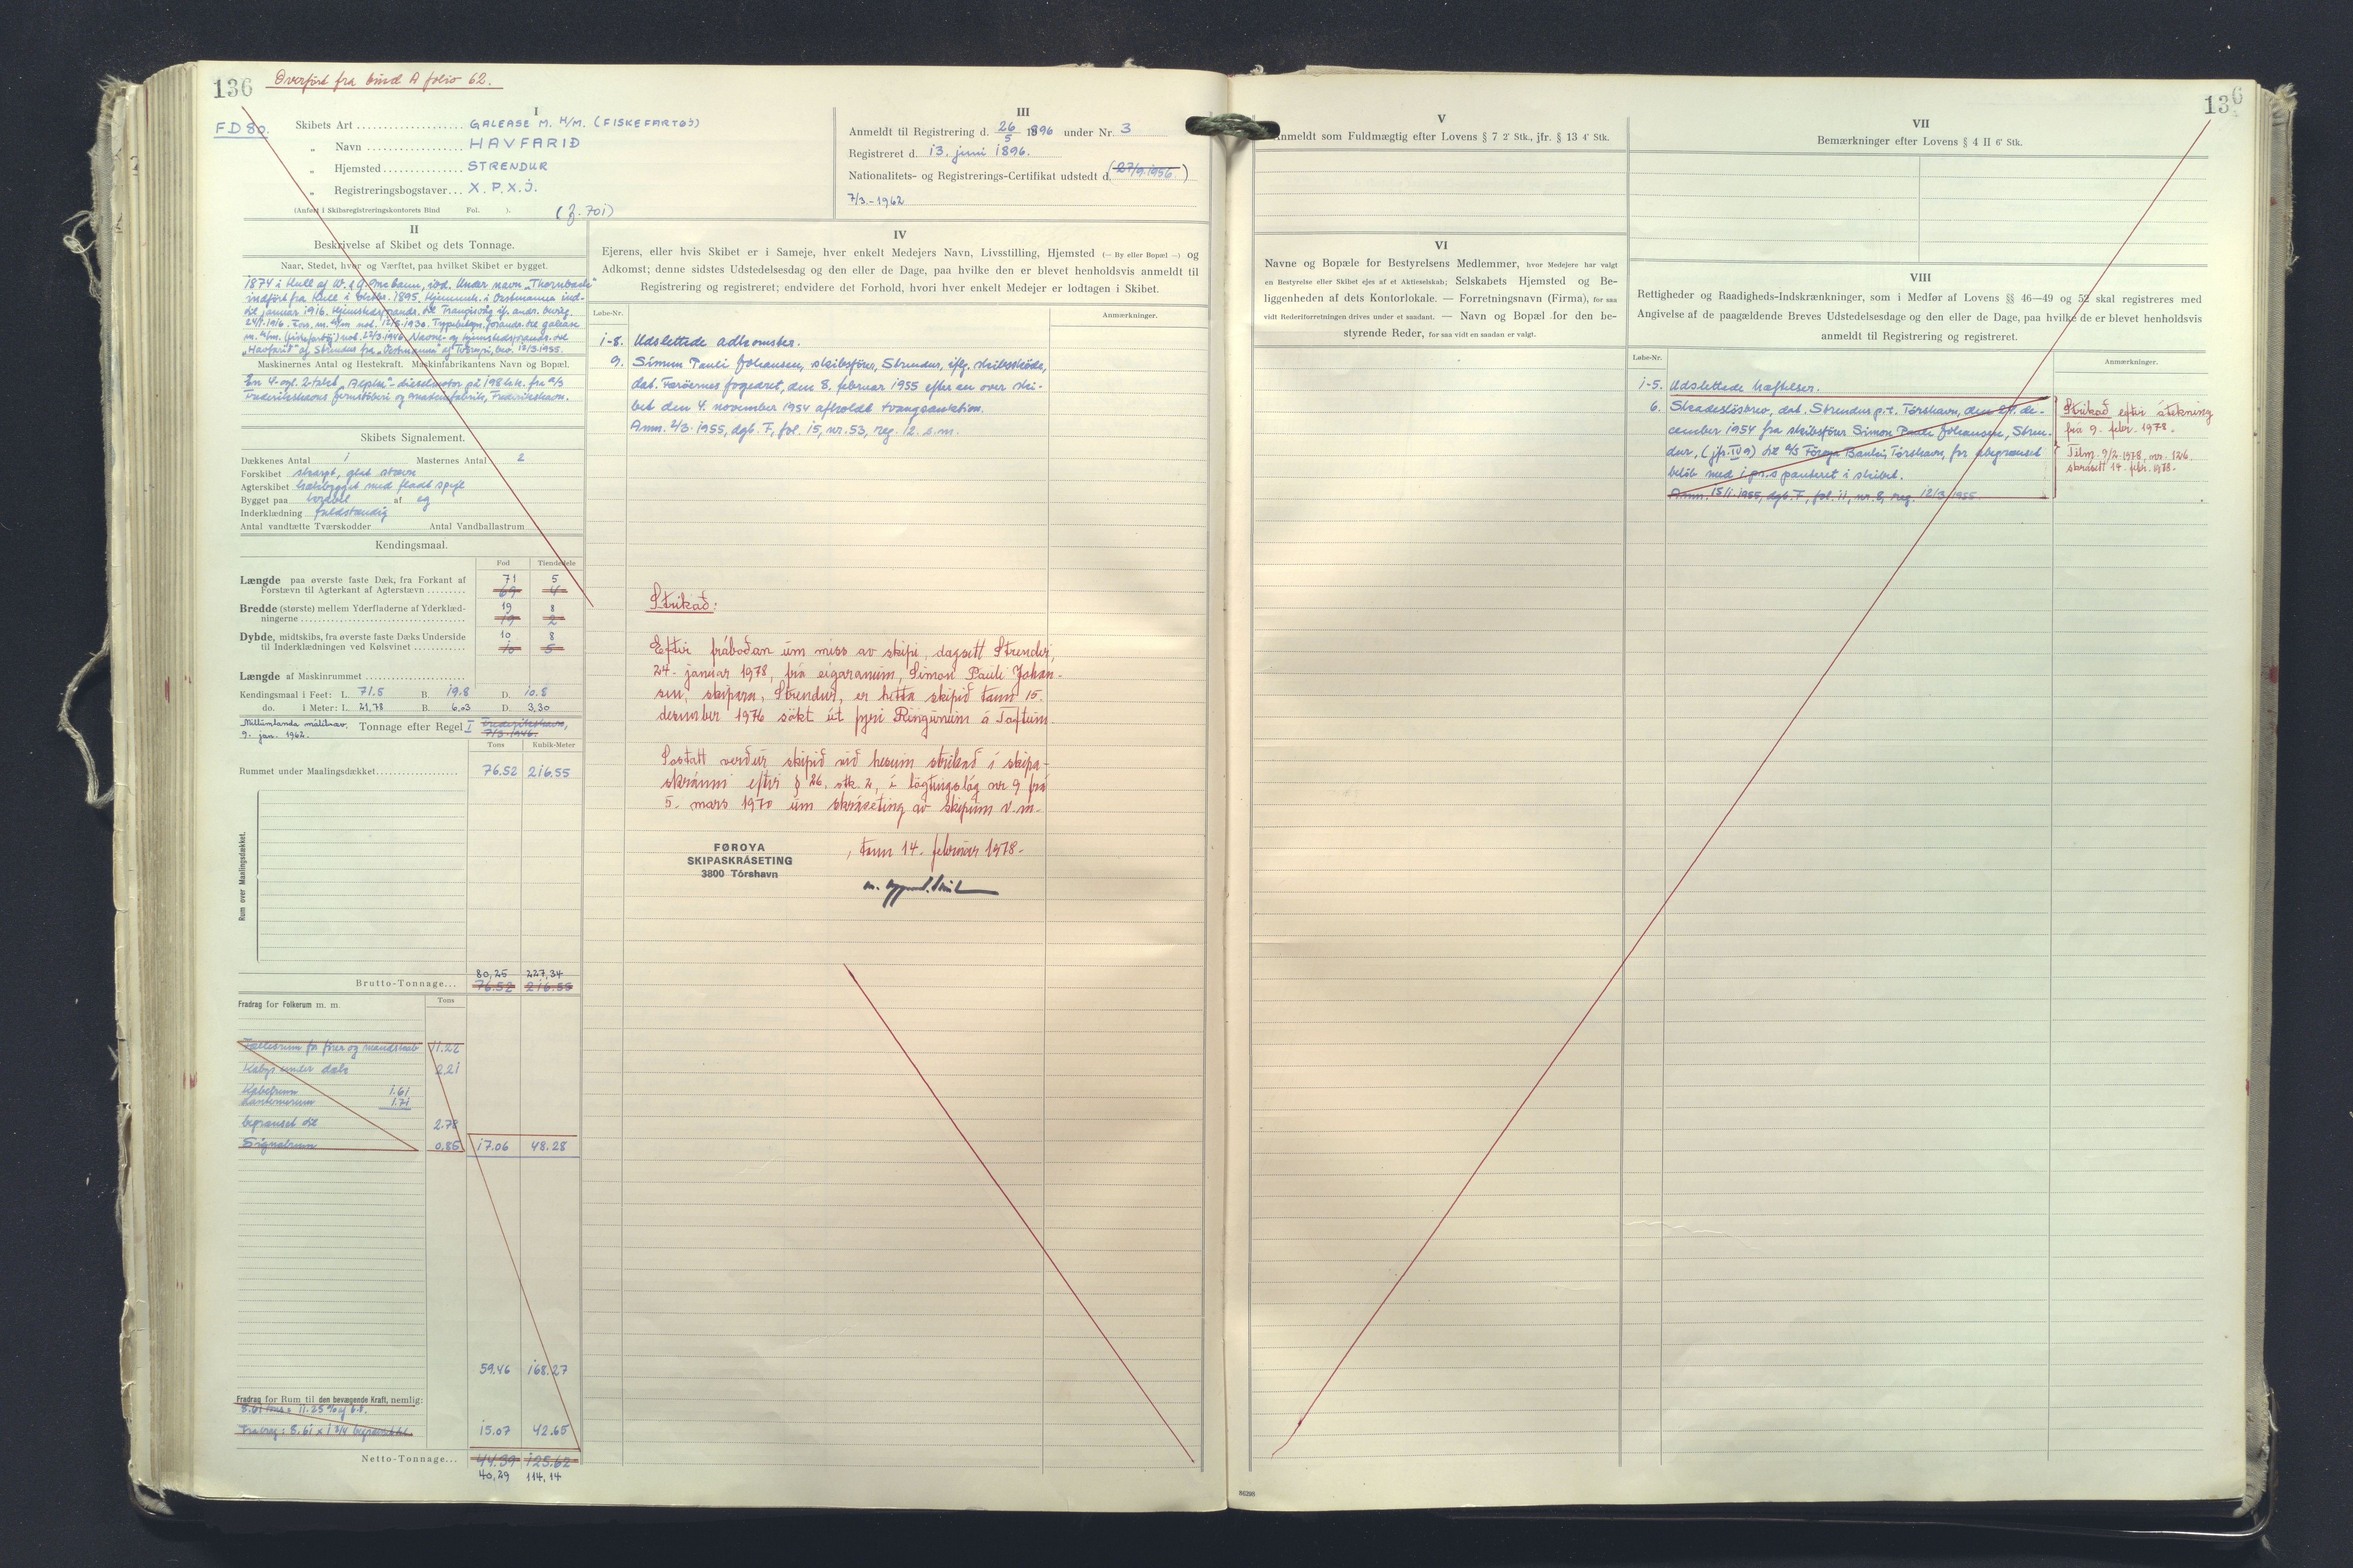 136 Overført fra bind A folio 62.
FD 80.
I
Skibets Art GALEASE M. H/M. (FISKEFARTØJ)
" Navn HAVFARIÐ
" Hjemsted STRENDUR
" Registreringsbogstaver X. P. X. J.
(Anført i Skibsregistreringskontorets Bind Fol. ).
III
Anmeldt til Registrering d. 26/5 1896 under Nr. 3
Registreret d. 13. juni 1896.
Nationalitets- og Registrerings-Certifikat udstedt d. (27/9.1956)
7/3.-1962
II
Beskrivelse af Skibet og dets Tonnage.
Naar, Stedet, hvor og Værftet, paa hvilket Skibet er bygget.
1874 i Hull af
indført fra Hull i 1895. Hjemmeh. i Vestmanna ind-
til januar 1916. Hjemstedsforandr. til Trangisvåg
24/1.1916. 1930. forandr. til galease
m. H/m. (fiskefartøj) Navne- og hjemstedsforandr. til
"Havfarið" af Strendur fra "Vestmanna" af Tvøroyri, 1955.
Maskinernes Antal og Hestekraft. Maskinfabrikantens Navn og Bopæl.
En 4-cyl. 2-takt "Alpha"-dieselmotor på 198 hk. fra A/S
Frederikshavns jernstøberi og maskinfabrik, Frederikshavn.
Skibets Signalement.
Dækkenes Antal 1 Masternes Antal 2
Forskibet skarpt, glat stævn
Agterskibet hækbygget med fladt spejl
Bygget paa kravel af eg
Inderklædning fuldstændig
Antal vandtætte Tværskodder Antal Vandballastrum
Kendingsmaal.
Fod Tiendedele
Længde paa øverste faste Dæk, fra Forkant af 71 5
Forstævn til Agterkant af Agterstævn 69 4
Bredde (største) mellem Yderfladerne af Yderklæd- 19 8
ningerne 19 2
Dybde, midtskibs, fra øverste faste Dæks Underside 10 8
til Inderklædningen ved Kølsvinet 10 5
Længde af Maskinrummet
Kendingsmaal i Feet: L. 71.5 B. 19.8 D. 10.8
do. i Meter: L. 21,78 B. 6,03 D. 3,30
Millumlanda málibræv.
9. jan. 1962.
Tonnage efter Regel I Frederikshavn,
7/3.1946.
Tons Kubik-Meter
Rummet under Maalingsdækket 76.52 216.55
Rum over Maalingsdækket.
80,25 227,34
Brutto-Tonnage... 76.52 216.55
Fradrag for Folkerum m. m. Tons
Fællesrum for fører og mandskab 11.22
Kabys under dæk 2.21
Kabelrum 1.61
Lanternerum 1.71
begrænset til 2.78
Signalrum 0.85 17.06 48.28
59.46 168.27
Fradrag for Rum til den bevægende Kraft, nemlig:
8.61 tons = 11.25 % af b.t.
Fradrag: 8.61 x 1 3/4 begrænset til 15.07 42.65
Netto-Tonnage... 44.39 125.62
40,29 114,14
IV
Ejerens, eller hvis Skibet er i Sameje, hver enkelt Medejers Navn, Livsstilling, Hjemsted (— By eller Bopæl —) og
Adkomst; denne sidstes Udstedelsesdag og den eller de Dage, paa hvilke den er blevet henholdsvis anmeldt til
Registrering og registreret; endvidere det Forhold, hvori hver enkelt Medejer er lodtagen i Skibet.
Løbe-Nr. Anmærkninger.
1-8. Udslettede adkomster.
9. Simun Pauli Johansen, skibsfører, Strendur, iflg. skibsskøde,
dat. Færøernes fogedret, den 8. februar 1955 efter en over ski-
bet den 4. november 1954 afholdt tvangsauktion.
Anm. 2/3.1955, dgb. F, fol. 15, nr. 53, reg. 12. s.m.
Strikað:
Eftir fráboðan um miss av skipi, dagsett Strendur,
24. januar 1978, frá eigaranum, Simon Pauli Johan-
sen, skipara, Strendur, er hetta skipið tann 15.
desember 1976 søkt út fyri Ringinum á Toftum.
Sostatt verður skipið við hesum strikað í skipa-
skránni eftir § 26, stk. 2, í løgtingslóg nr. 9 frá
5. mars 1970 um skráseting av skipum v.m.
FØROYA
SKIPASKRÁSETING
3800 Tórshavn
, tann 14. februar 1978.
136
V
Anmeldt som Fuldmægtig efter Lovens § 7 2' Stk., jfr. § 13 4' Stk.
VI
Navne og Bopæle for Bestyrelsens Medlemmer, hvor Medejere har valgt
en Bestyrelse eller Skibet ejes af et Aktieselskab; Selskabets Hjemsted og Be-
liggenheden af dets Kontorlokale. — Forretningsnavn (Firma), for saa
vidt Rederiforretningen drives under et saadant. — Navn og Bopæl for den be-
styrende Reder, for saa vidt en saadan er valgt.
VII
Bemærkninger efter Lovens § 4 II 6' Stk.
VIII
Rettigheder og Raadigheds-Indskrænkninger, som i Medfør af Lovens §§ 46—49 og 52 skal registreres med
Angivelse af de paagældende Breves Udstedelsesdage og den eller de Dage, paa hvilke de er blevet henholdsvis
anmeldt til Registrering og registreret.
Løbe-Nr. Anmærkninger.
1-5. Udslettede hæftelser.
6. Skadesløsbrev, dat. Strendur p.t. Tórshavn, den 29. de-
cember 1954 fra skibsfører Simon Pauli Johansen, Stren-
dur, (jfr. IV 9) til A/S Føroya Banki, Tórshavn, for ubegrænset
beløb med 1. pr. s panteret i skibet.
Anm. 15/1.1955, dgb. F, fol. 11, nr. 8, reg. 12/3.1955
Strikað eftir átekning
frá 9. febr. 1978.
Tilm. 9/2.1978, nr. 126.
skrásett 14. febr. 1978.
86298